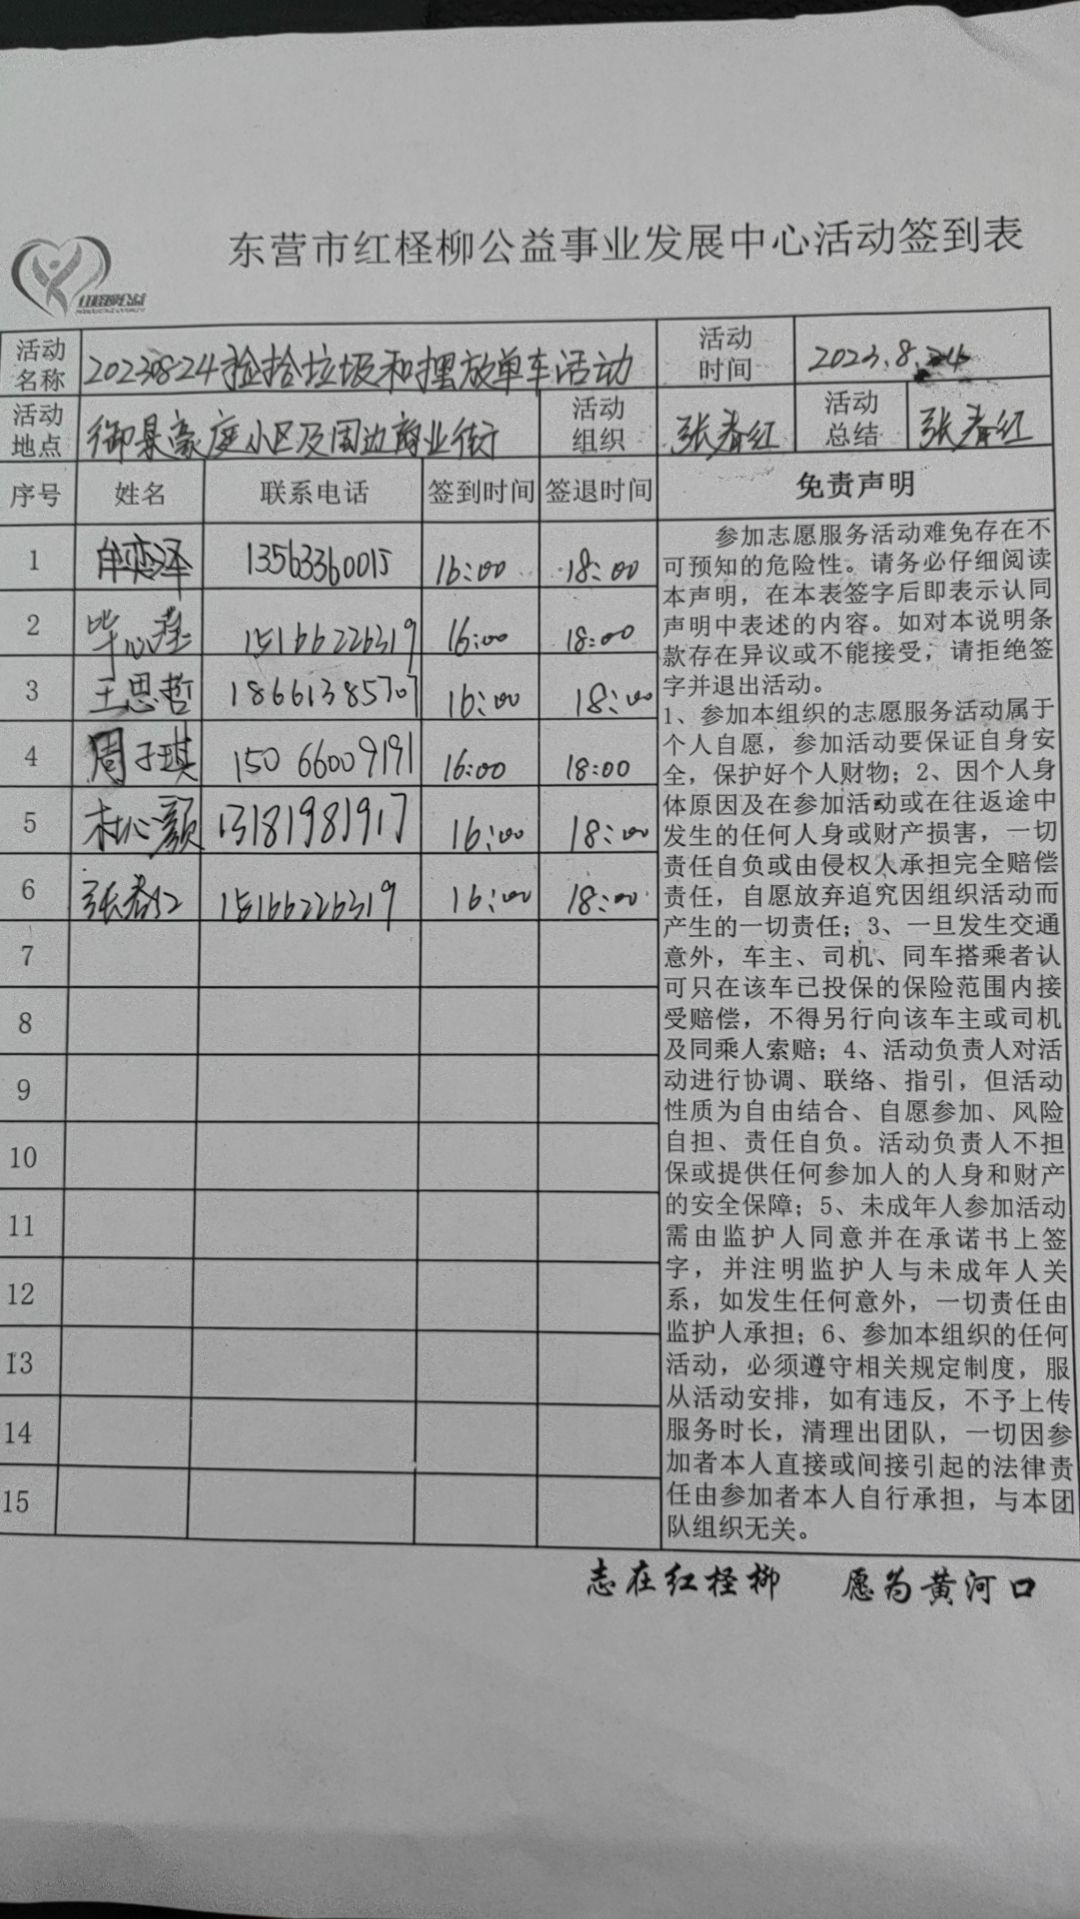 东营市红柽柳公益事业发展中心活动签到表
红柽柳公益
活动名称 20230824捡拾垃圾和摆放单车活动 活动时间 2023.8.24
活动地点 御景豪庭小区及周边商业街 活动组织 张春红 活动总结 张春红
序号 姓名 联系电话 签到时间 签退时间 免责声明
1 13563360015 16:00 18:00
2 毕心 15166226319 16:00 18:00
3 王思哲 18661385707 16:00 18:00
4 周子琪 150 66009191 16:00 18:00
5 杜心颜 13181981917 16:00 18:00
6 张春红 15166226319 16:00 18:00
7
8
9
10
11
12
13
14
15
参加志愿服务活动难免存在不
可预知的危险性。请务必仔细阅读
本声明，在本表签字后即表示认同
声明中表述的内容。如对本说明条
款存在异议或不能接受，请拒绝签
字并退出活动。
1、参加本组织的志愿服务活动属于
个人自愿，参加活动要保证自身安
全，保护好个人财物；2、因个人身
体原因及在参加活动或在往返途中
发生的任何人身或财产损害，一切
责任自负或由侵权人承担完全赔偿
责任，自愿放弃追究因组织活动而
产生的一切责任；3、一旦发生交通
意外，车主、司机、同车搭乘者认
可只在该车已投保的保险范围内接
受赔偿，不得另行向该车主或司机
及同乘人索赔；4、活动负责人对活
动进行协调、联络、指引，但活动
性质为自由结合、自愿参加、风险
自担、责任自负。活动负责人不担
保或提供任何参加人的人身和财产
的安全保障；5、未成年人参加活动
需由监护人同意并在承诺书上签
字，并注明监护人与未成年人关
系，如发生任何意外，一切责任由
监护人承担；6、参加本组织的任何
活动，必须遵守相关规定制度，服
从活动安排，如有违反，不予上传
服务时长，清理出团队，一切因参
加者本人直接或间接引起的法律责
任由参加者本人自行承担，与本团
队组织无关。
志在红柽柳 愿为黄河口